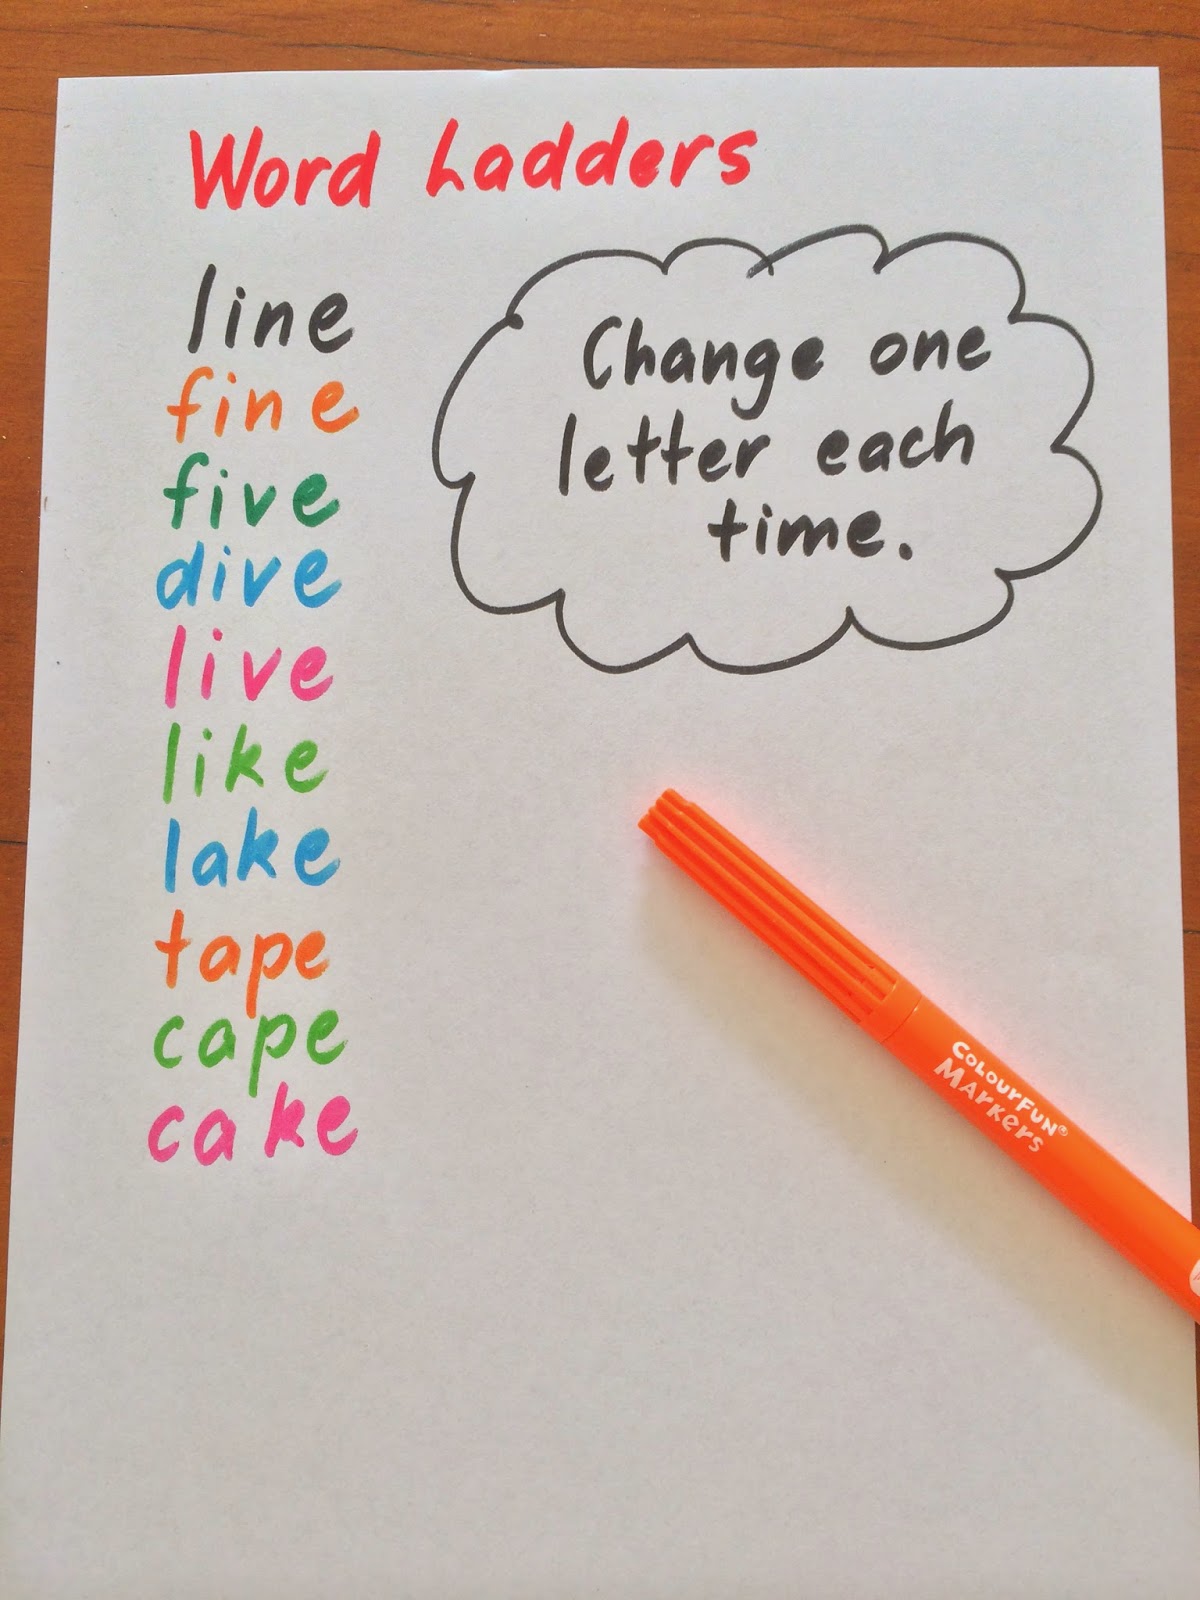 Word Ladders
line
fine
five
dive
live
like
lake
tape
cape
cake
Change one
letter each
time.
COLOURFUN®
MARKERS